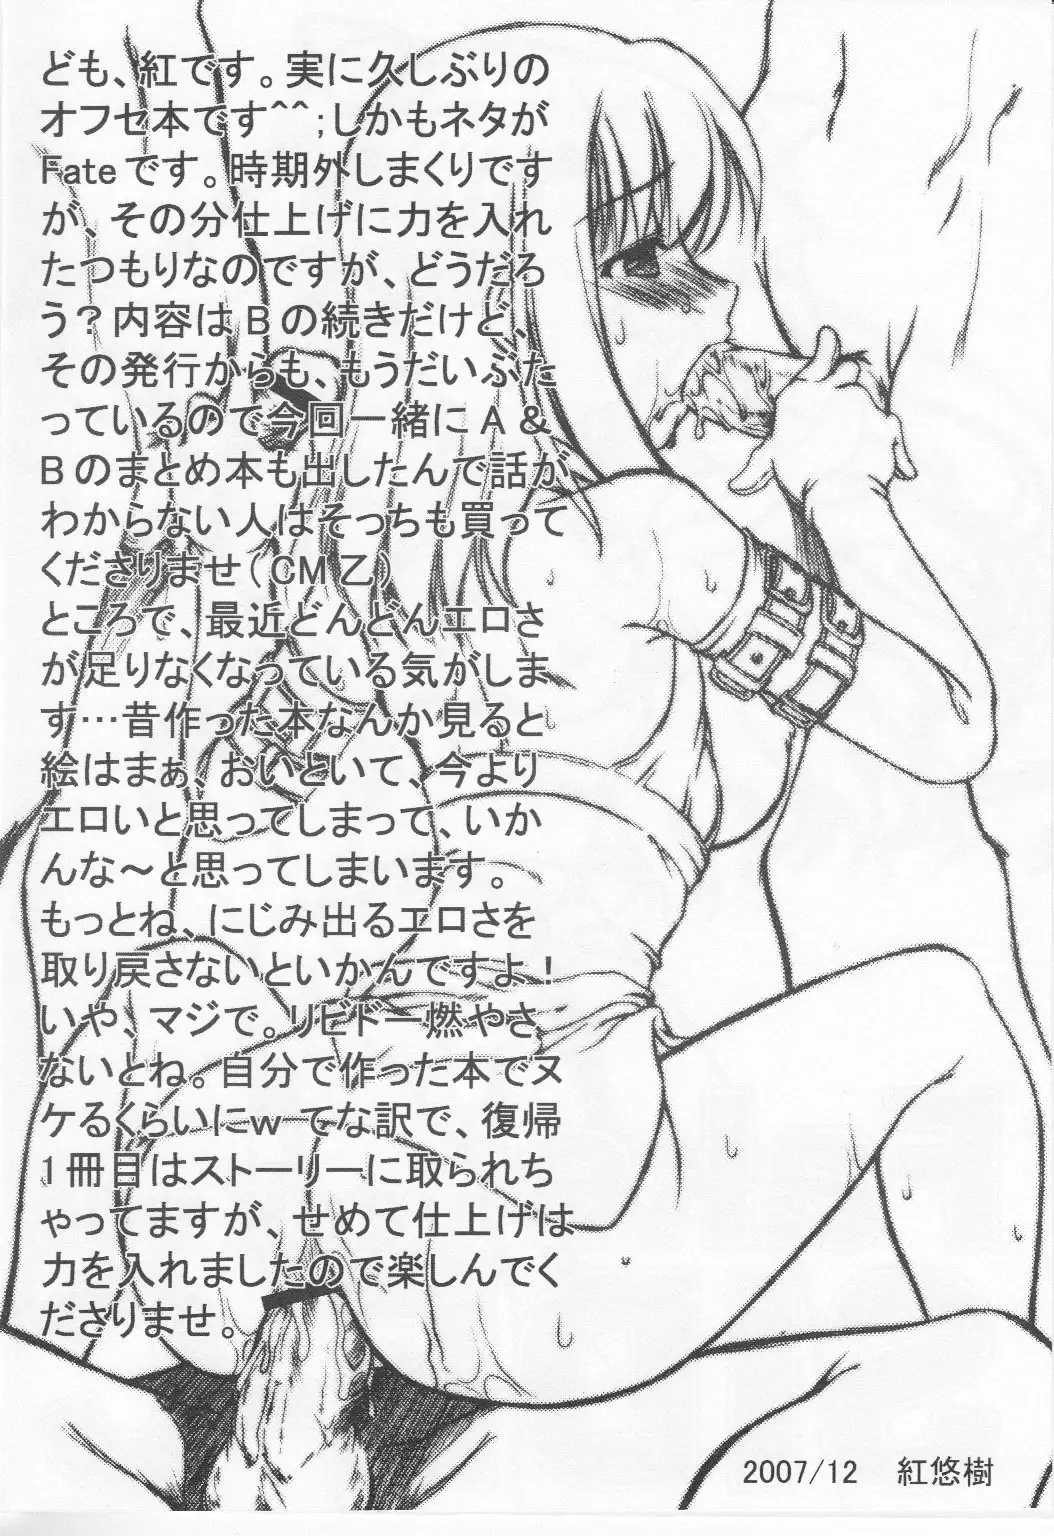 ども、紅です。実に久しぶりの
オフセ本です^^;しかもネタが
Fateです。時期外しまくりです
が、その分仕上げに力を入れ
たつもりなのですが、どうだろ
う？内容はBの続きだけど、
その発行からも、もうだいぶた
っているので今回一緒にA＆
Bのまとめ本も出したんで話が
わからない人はそっちも買って
くださりませ（CM乙）
ところで、最近どんどんエロさ
が足りなくなっている気がしま
す…昔作った本なんか見ると
絵はまぁ、おいといて、今より
エロいと思ってしまって、いか
んな～と思ってしまいます。
もっとね、にじみ出るエロさを
取り戻さないといかんですよ！
いや、マジで。リビドー燃やさ
ないとね。自分で作った本でヌ
ケるくらいにｗ てな訳で、復帰
1冊目はストーリーに取られち
ゃってますが、せめて仕上げは
力を入れましたので楽しんでく
ださりませ。
2007/12 紅悠樹